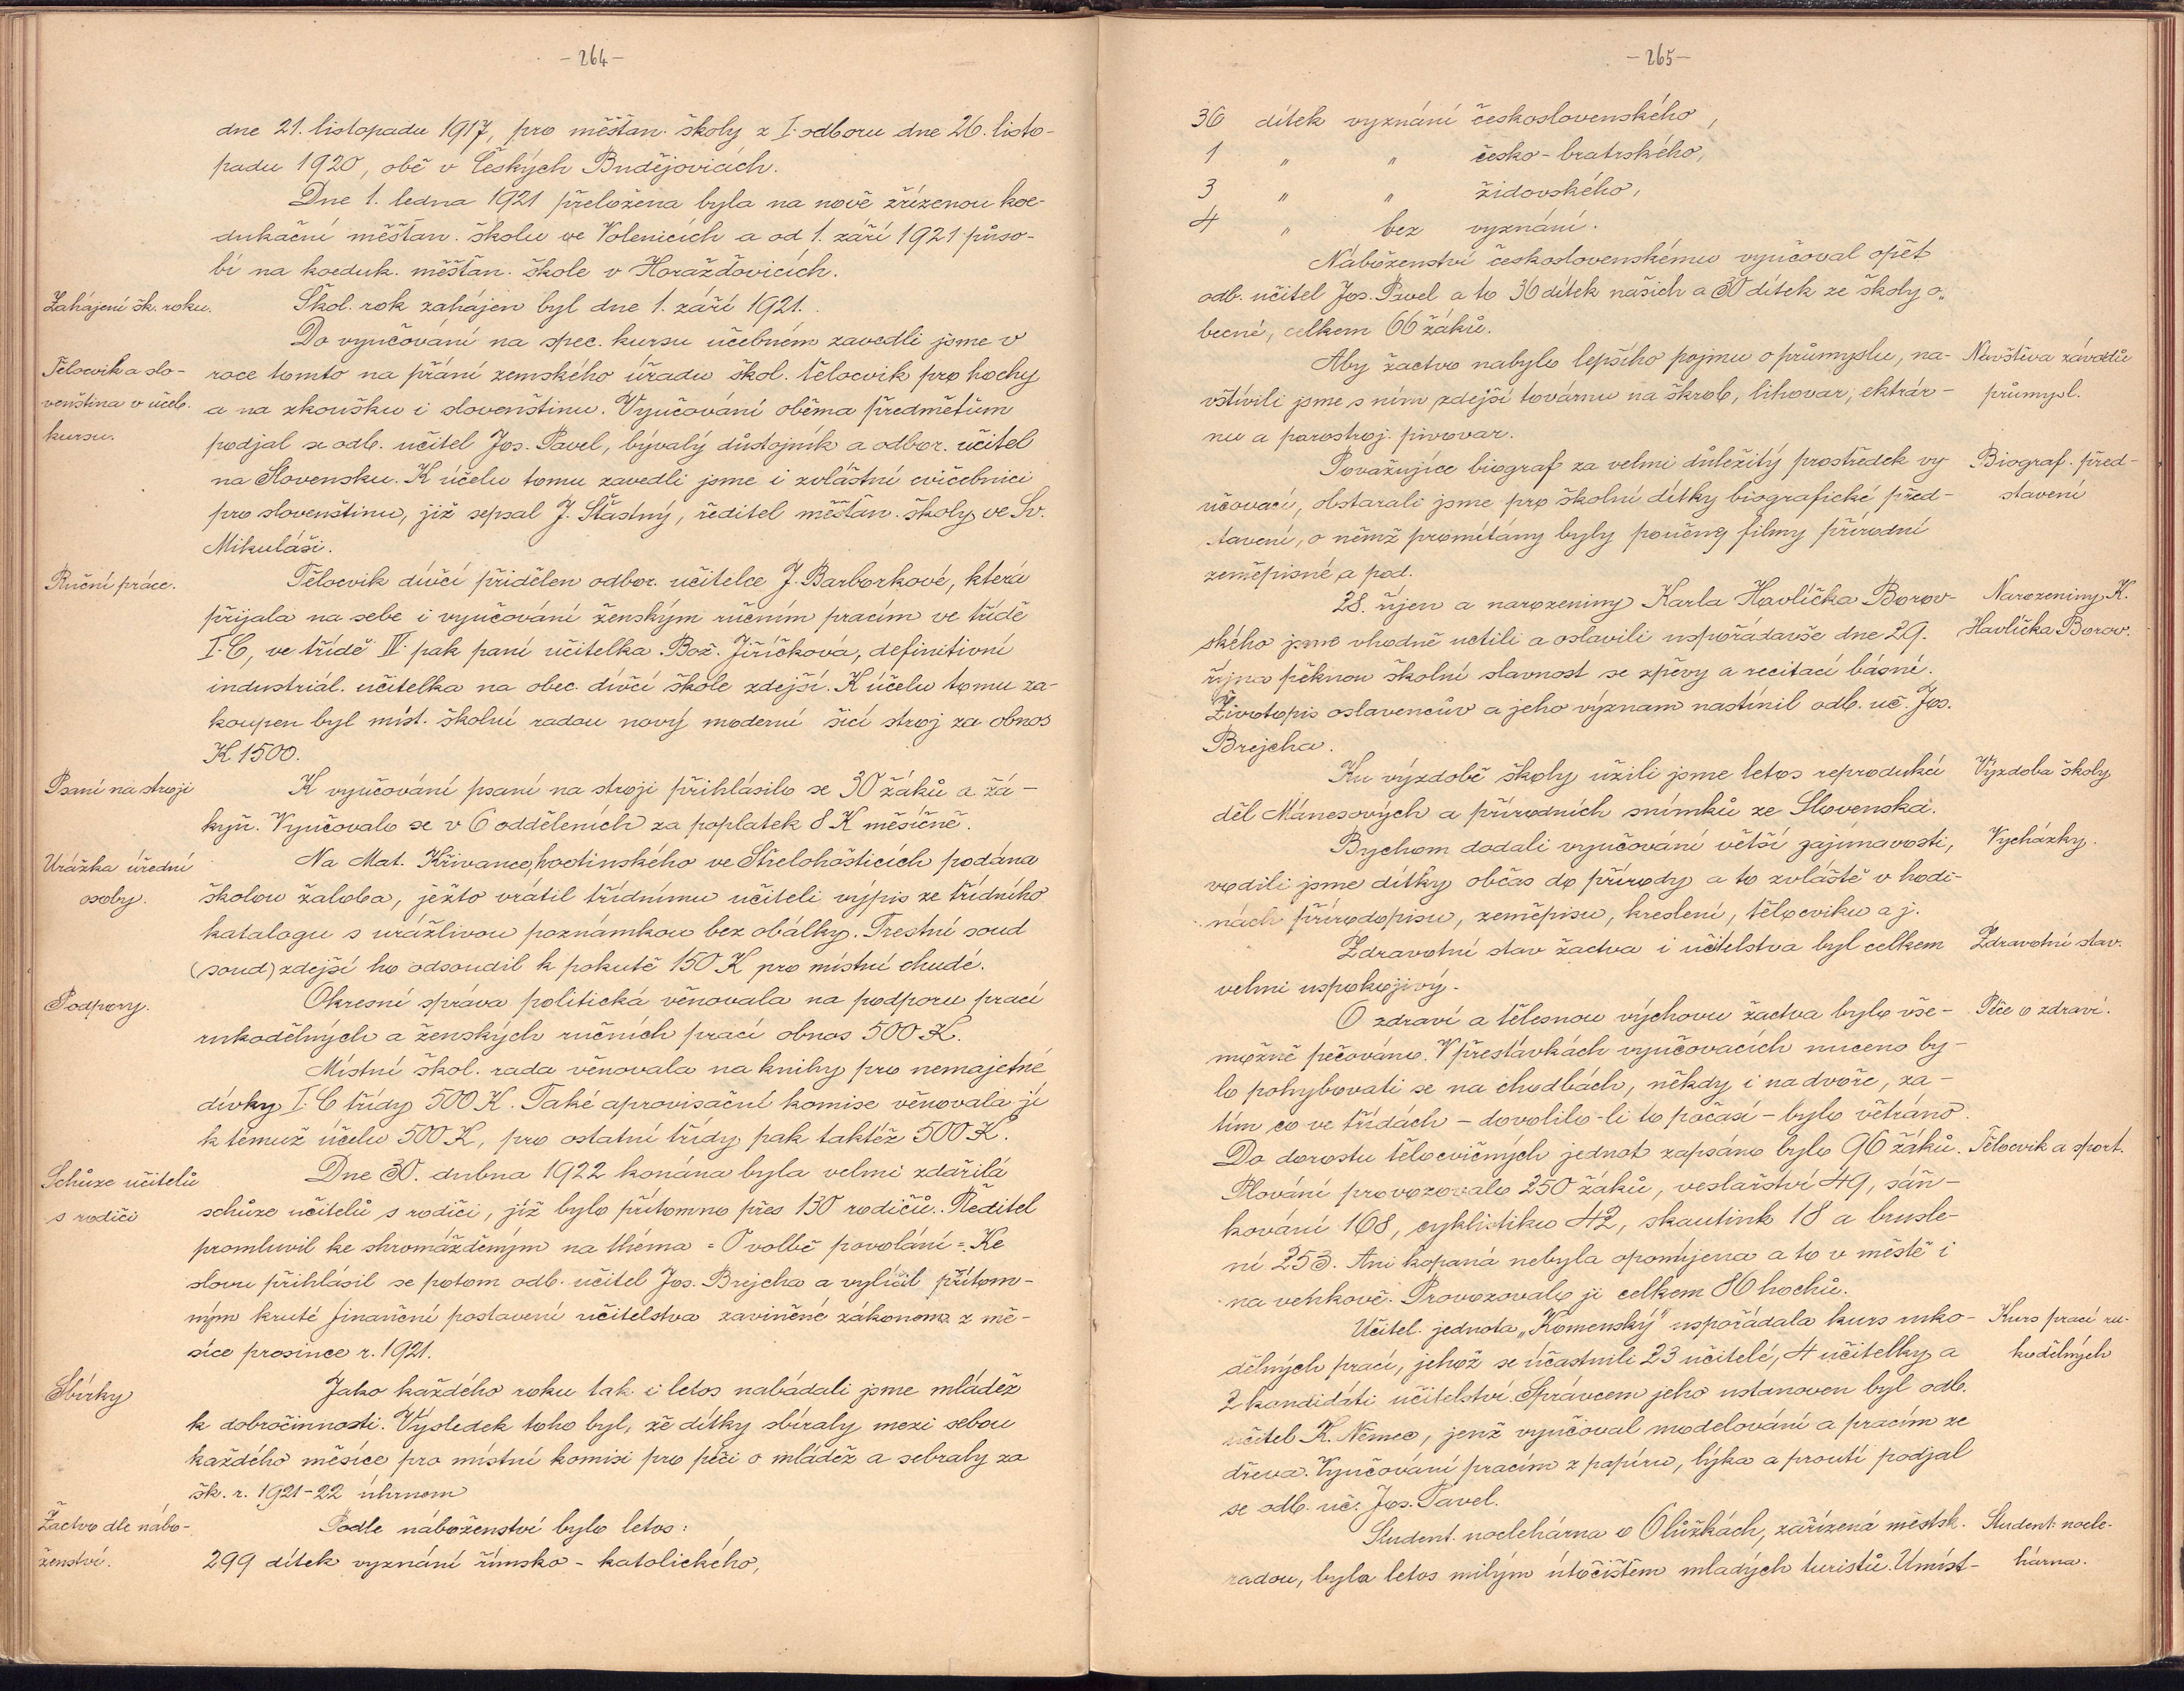 - 264 -
dne 21. listopadu 1917, pro měšťan. školy z I. odboru dne 26. listo-
padu 1920, obě v Českých Budějovicích.
Dne 1. ledna 1921 přeložena byla na nově zřízenou koe-
dukační měšťan. školu ve Volenicích a od 1. září 1921 půso-
bí na koeduk. měšťan. škole v Horažďovicích.
Zahájení šk. roku.
Škol. rok zahájen byl dne 1. září 1921.
Do vyučování na spec. kursu učebném zavedli jsme v
Tělocvik a slo-
roce tomto na přání zemského úřadu škol. tělocvik pro hochy
venština v učeb.
a na zkoušku i slovenštinu. Vyučování oběma předmětům
kursu.
podjal se odb. učitel Jos. Pavel, bývalý důstojník a odbor. učitel
na Slovensku. K účelu tomu zavedli jsme i zvláštní cvičebnici
pro slovenštinu, již sepsal J. Šťastný, ředitel měšťan. školy ve Sv.
Mikuláši.
Ruční práce.
Tělocvik dívčí přidělen odbor. učitelce J. Barborkové, která
přijala na sebe i vyučování ženským ručním pracím ve třídě
I. C, ve třídě IV. pak paní učitelka Bož. Jiříčková, definitivní
industriál. učitelka na obec. dívčí škole zdejší. K účelu tomu za-
koupen byl míst. školní radou nový moderní šicí stroj za obnos
K 1500.
Psaní na stroji
K vyučování psaní na stroji přihlásilo se 30 žáků a žá-
kyň. Vyučovalo se v 6 odděleních za poplatek 8 K měsíčně.
Urážka úřední
Na Mat. Křivance, hostinského ve Střelohošticích podána
osoby.
školou žaloba, ježto vrátil třídnímu učiteli výpis ze třídního
katalogu s urážlivou poznámkou bez obálky. Trestní soud
(soud) zdejší ho odsoudil k pokutě 150 K pro místní chudé.
Podpory.
Okresní správa politická věnovala na podporu prací
rukodělných a ženských ručních prací obnos 500 K.
Místní škol. rada věnovala na knihy pro nemajetné
dívky I. C třídy 500 K. Také aprovisační komise věnovala jí
k témuž účelu 500 K, pro ostatní třídy pak taktéž 500 K.
Schůze učitelů
Dne 30. dubna 1922 konána byla velmi zdařilá
s rodiči
schůze učitelů s rodiči, jíž bylo přítomno přes 130 rodičů. Ředitel
promluvil ke shromážděným na thema = O volbě povolání =. Ke
slovu přihlásil se potom odb. učitel Jos. Brejcha a vylíčil přítom-
ným kruté finanční postavení učitelstva zaviněné zákonem z mě-
síce prosince r. 1921.
Sbírky
Jako každého roku tak i letos nabádali jsme mládež
k dobročinnosti. Výsledek toho byl, že dítky sbíraly mezi sebou
každého měsíce pro místní komisi pro péči o mládež a sebraly za
šk. r. 1921-22 úhrnem
Žactvo dle nábo-
Podle náboženství bylo letos:
ženství.
299 dítek vyznání římsko-katolického,
- 265 -
36 dítek vyznání československého,
1 " " česko-bratrského,
3 " " židovského,
4 " bez vyznání.
Náboženství československému vyučoval opět
odb. učitel Jos. Pavel a to 36 dítek našich a 30 dítek ze školy o„
becné, celkem 66 žáků.
Aby žactvo nabylo lepšího pojmu o průmyslu, na-
Návštěva závodů
vštívili jsme s ním zdejší továrnu na škrob, lihovar, ektrár-
průmysl.
nu a parostroj. pivovar.
Považujíce biograf za velmi důležitý prostředek vy
Biograf. před-
učovací, obstarali jsme pro školní dítky biografické před-
stavení
stavení, o němž promítány byly poučné filmy přírodní
zeměpisné a pod.
28. říjen a narozeniny Karla Havlíčka Borov-
Narozeniny K.
ského jsme vhodně uctili a oslavili uspořádavše dne 29.
Havlíčka Borov.
října pěknou školní slavnost se zpěvy a recitací básní.
Životopis oslavencův a jeho význam nastínil odb. uč. Jos.
Brejcha.
Ku výzdobě školy užili jsme letos reprodukcí
Výzdoba školy
děl Mánesových a přírodních snímků ze Slovenska.
Bychom dodali vyučování větší zajímavosti,
Vycházky.
vodili jsme dítky občas do přírody a to zvláště v hodi-
nách přírodopisu, zeměpisu, kreslení, tělocviku a j.
Zdravotní stav žactva i učitelstva byl celkem
Zdravotní stav.
velmi uspokojivý.
O zdraví a tělesnou výchovu žactva bylo vše-
Péče o zdraví.
možně pečováno. V přestávkách vyučovacích nuceno by-
lo pohybovati se na chodbách, někdy i na dvoře, za-
tím co ve třídách - dovolilo-li to počasí - bylo větráno.
Do dorostu tělocvičných jednot zapsáno bylo 96 žáků.
Tělocvik a sport.
Plování provozovalo 250 žáků, veslařství 49, sáň-
kování 168, cyklistiku 42, skautink 18 a brusle-
ní 253. Ani kopaná nebyla opomíjena a to v městě i
na venkově. Provozovalo ji celkem 86 hochů.
Učitel. jednota „Komenský" uspořádala kurs ruko-
Kurs prací ru-
dělných prací, jehož se účastnili 23 učitelé, 4 učitelky a
kodělných
2 kandidáti učitelství. Správcem jeho ustanoven byl odb.
učitel K. Němec, jenž vyučoval modelování a pracím ze
dřeva. Vyučování pracím z papíru, lýka a proutí podjal
se odb. uč. Jos. Pavel.
Student. noclehárna o 6 lůžkách, zařízená městsk.
Student. nocle-
radou, byla letos milým útočištěm mladých turistů. Umíst-
hárna.